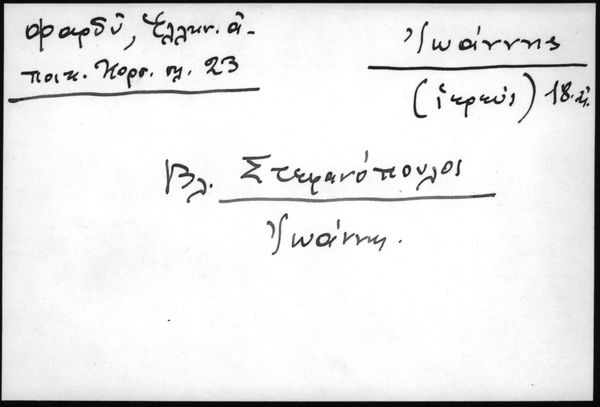 Φαρδύ, Ἑλλην. ἀ-
ποικ. Κορσ. σλ. 23
Ἰωάννης
(ἱερεύς) 18. αἰ.
Βλ. Στεφανόπουλος
Ἰωάννης.